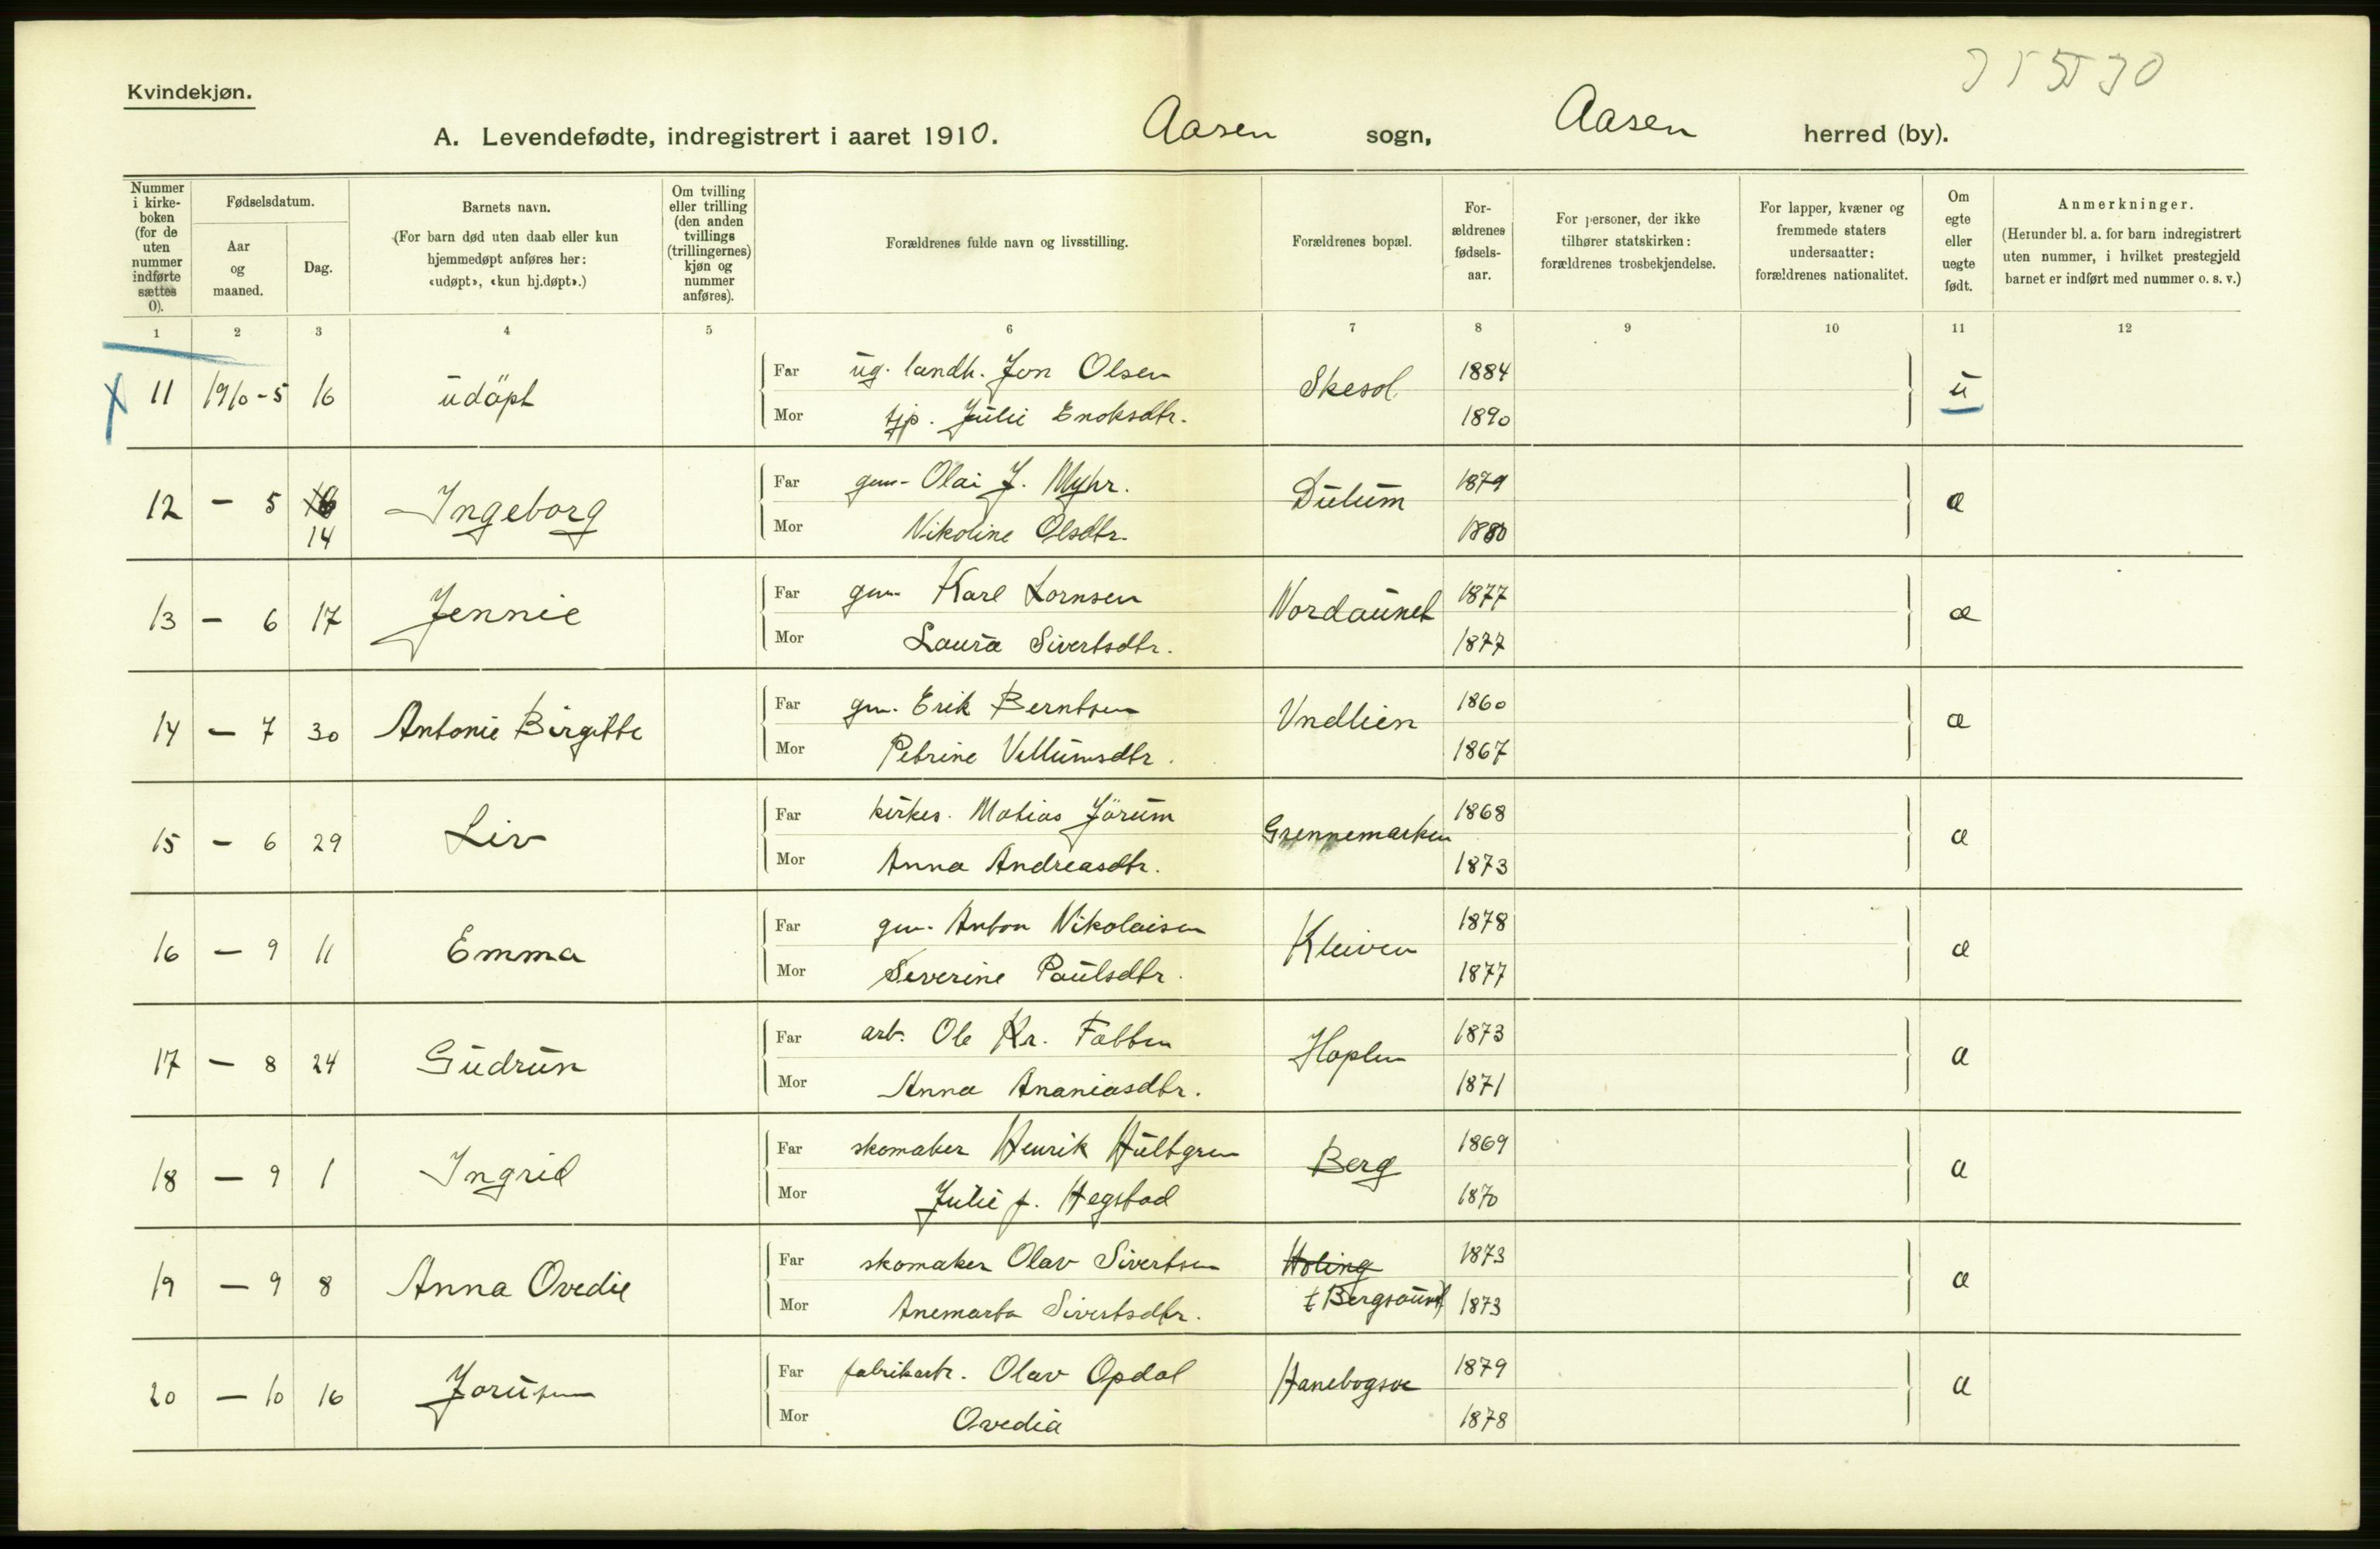 35530
Kvindekjøn.
A. Levendefødte, indregistrert i aaret 1910. Aasen sogn, Aasen herred (by).
Nummer i kirke-boken (for de uten nummer indførte sættes 0).
Fødselsdatum.
Aar og maaned.
Dag.
Barnets navn.
(For barn død uten daab eller kun hjemmedøpt anføres her: «udøpt», «kun hj.døpt».)
Om tvilling eller trilling (den anden tvillings (trillingernes) kjøn og nummer anføres).
Forældrenes fulde navn og livsstilling.
Forældrenes bopæl.
For-ældrenes fødsels-aar.
For personer, der ikke tilhører statskirken: forældrenes trosbekjendelse.
For lapper, kvæner og fremmede staters undersaatter: forældrenes nationalitet.
Om egte eller uegte født.
Anmerkninger.
(Herunder bl. a. for barn indregistrert uten nummer, i hvilket prestegjeld barnet er indført med nummer o. s. v.)
1 2 3 4 5 6 7 8 9 10 11 12
X 11 1910 - 5 16 udöpt Far ug. landh. Jon Olsen Skesol 1884 u
Mor tjp. Julie Enoksdtr. 1890
12 - 5 16 14 Ingeborg Far gm. Olai J. Myhr. Dulum 1879 æ
Mor Nikoline Olsdtr. 1880
13 - 6 17 Jennie Far gm. Karl Lornsen Nordaunet 1877 æ
Mor Laura Sivertsdtr. 1877
14 - 7 30 Antonie Birgitte Far gm. Erik Berntsen Vndlien 1860 æ
Mor Petrine Vellumsdtr. 1867
15 - 6 29 Liv Far kirkes. Matias Jörum Grennemarken 1868 æ
Mor Anna Andreasdtr. 1873
16 - 9 11 Emma Far gm. Anton Nikolaisen Kleiven 1878 æ
Mor Severine Paulsdtr. 1877
17 - 8 24 Gudrun Far arb. Ole Kr. Fatten Hoplen 1873 æ
Mor Anna Ananiasdtr. 1871
18 - 9 1 Ingrid Far skomaker Henrik Hultgren Berg 1869 æ
Mor Julie f. Hegstad 1870
19 - 9 8 Anna Ovedie Far skomaker Olav Sivertsen Holing 1873 æ
Mor Anemarta Sivertsdtr. t Bergsaunet 1873
20 - 10 16 Far fabrikarb. Olav Opdal 1879 æ
Mor Ovedia 1878